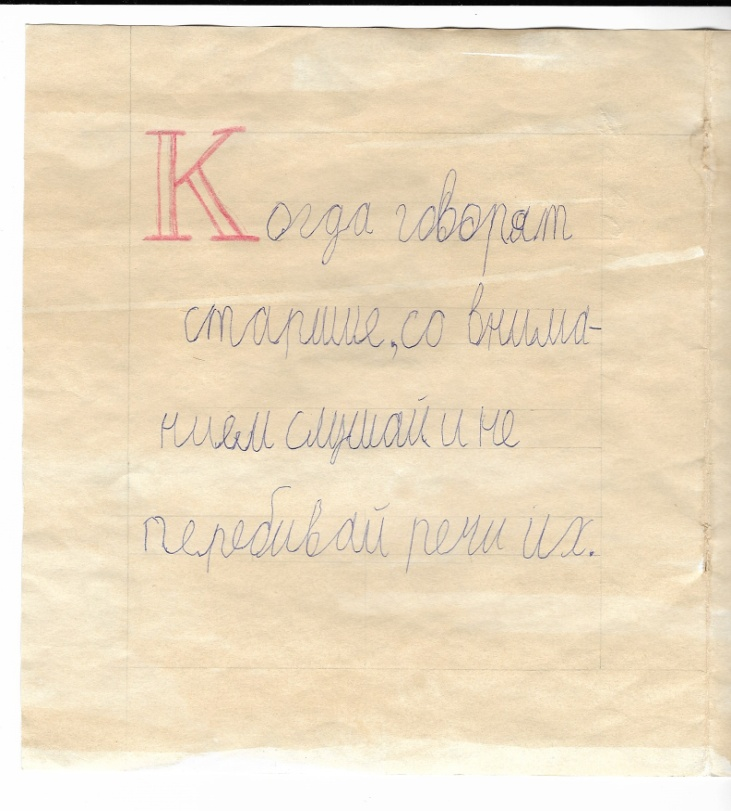 Когда говорят
старшие, со внима-
нием слушай и не
перебивай речи их.